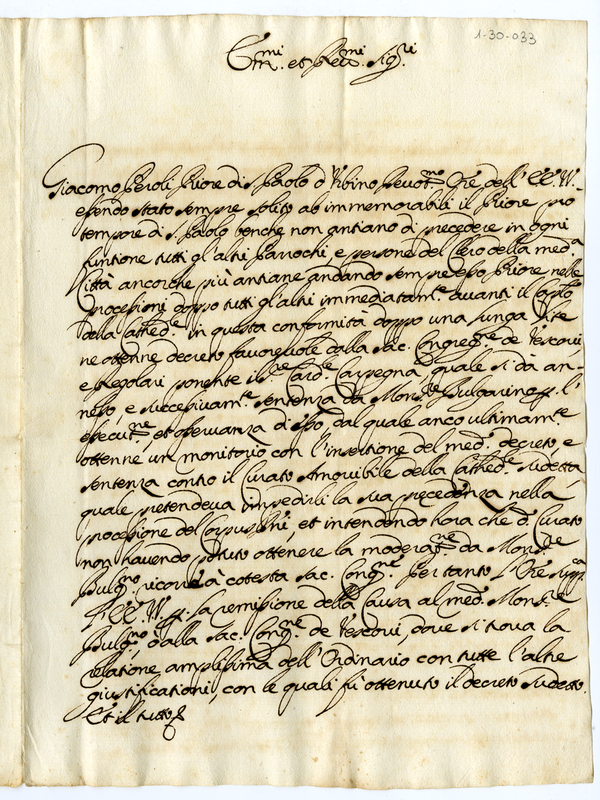 1-30-033
Em.mi et Reu.mi Sig.ri
Giacomo Peroli Priore di S. Paolo d'Vrbino deuot.mo Ore dell' EE. VV.
essendo stato sempre solito ab immemorabili il Priore pro
tempore di S. Paolo benche non antiano di precedere in ogni
funtione tutti gl'altri Parochi, e persone del Clero della med.a
Città ancorche più antiane andando sempre esso Priore nelle
processioni doppo tutti gl'altri immediatam.te auanti il Capitolo
della Cathed.le in questa conformità doppo una lunga lite
ne ottenne decreto fauoreuole dalla Sac. Congreg.ne de Vescoui,
e Regolari ponente il S.re Card.e Carpegna, quale si dà an-
nesso, e successiuam.te sentenza da Mons.re Bulgarino p. l'
esecut.ne, et osseruanza di esso, dal quale anco ultimam.te
ottenne un monitorio con l'insertione del med. decreto, e
sentenza contro il Curato Amouibile della Cathed.le sudetta,
quale pretendeua impedirli la sua precedenza nella
processione del Corpus Dñi, et intendendo hora che d. Curato
non hauendo potuto ottenere la moderat.ne da Mons.re
Bulg.no ricorre à cotesta Sac. Cong.ne Per tanto l'Ore supp.ca
l'EE. VV. p. la remissione della Causa al med. Mons.re
Bulg.no, ò alla Sac. Cong.ne de Vescoui, doue si troua la
relatione amplissima dell'Ordinario con tutte l'altre
giustificationi, con le quali fù ottenuto il decreto sudetto.
Et il tutto